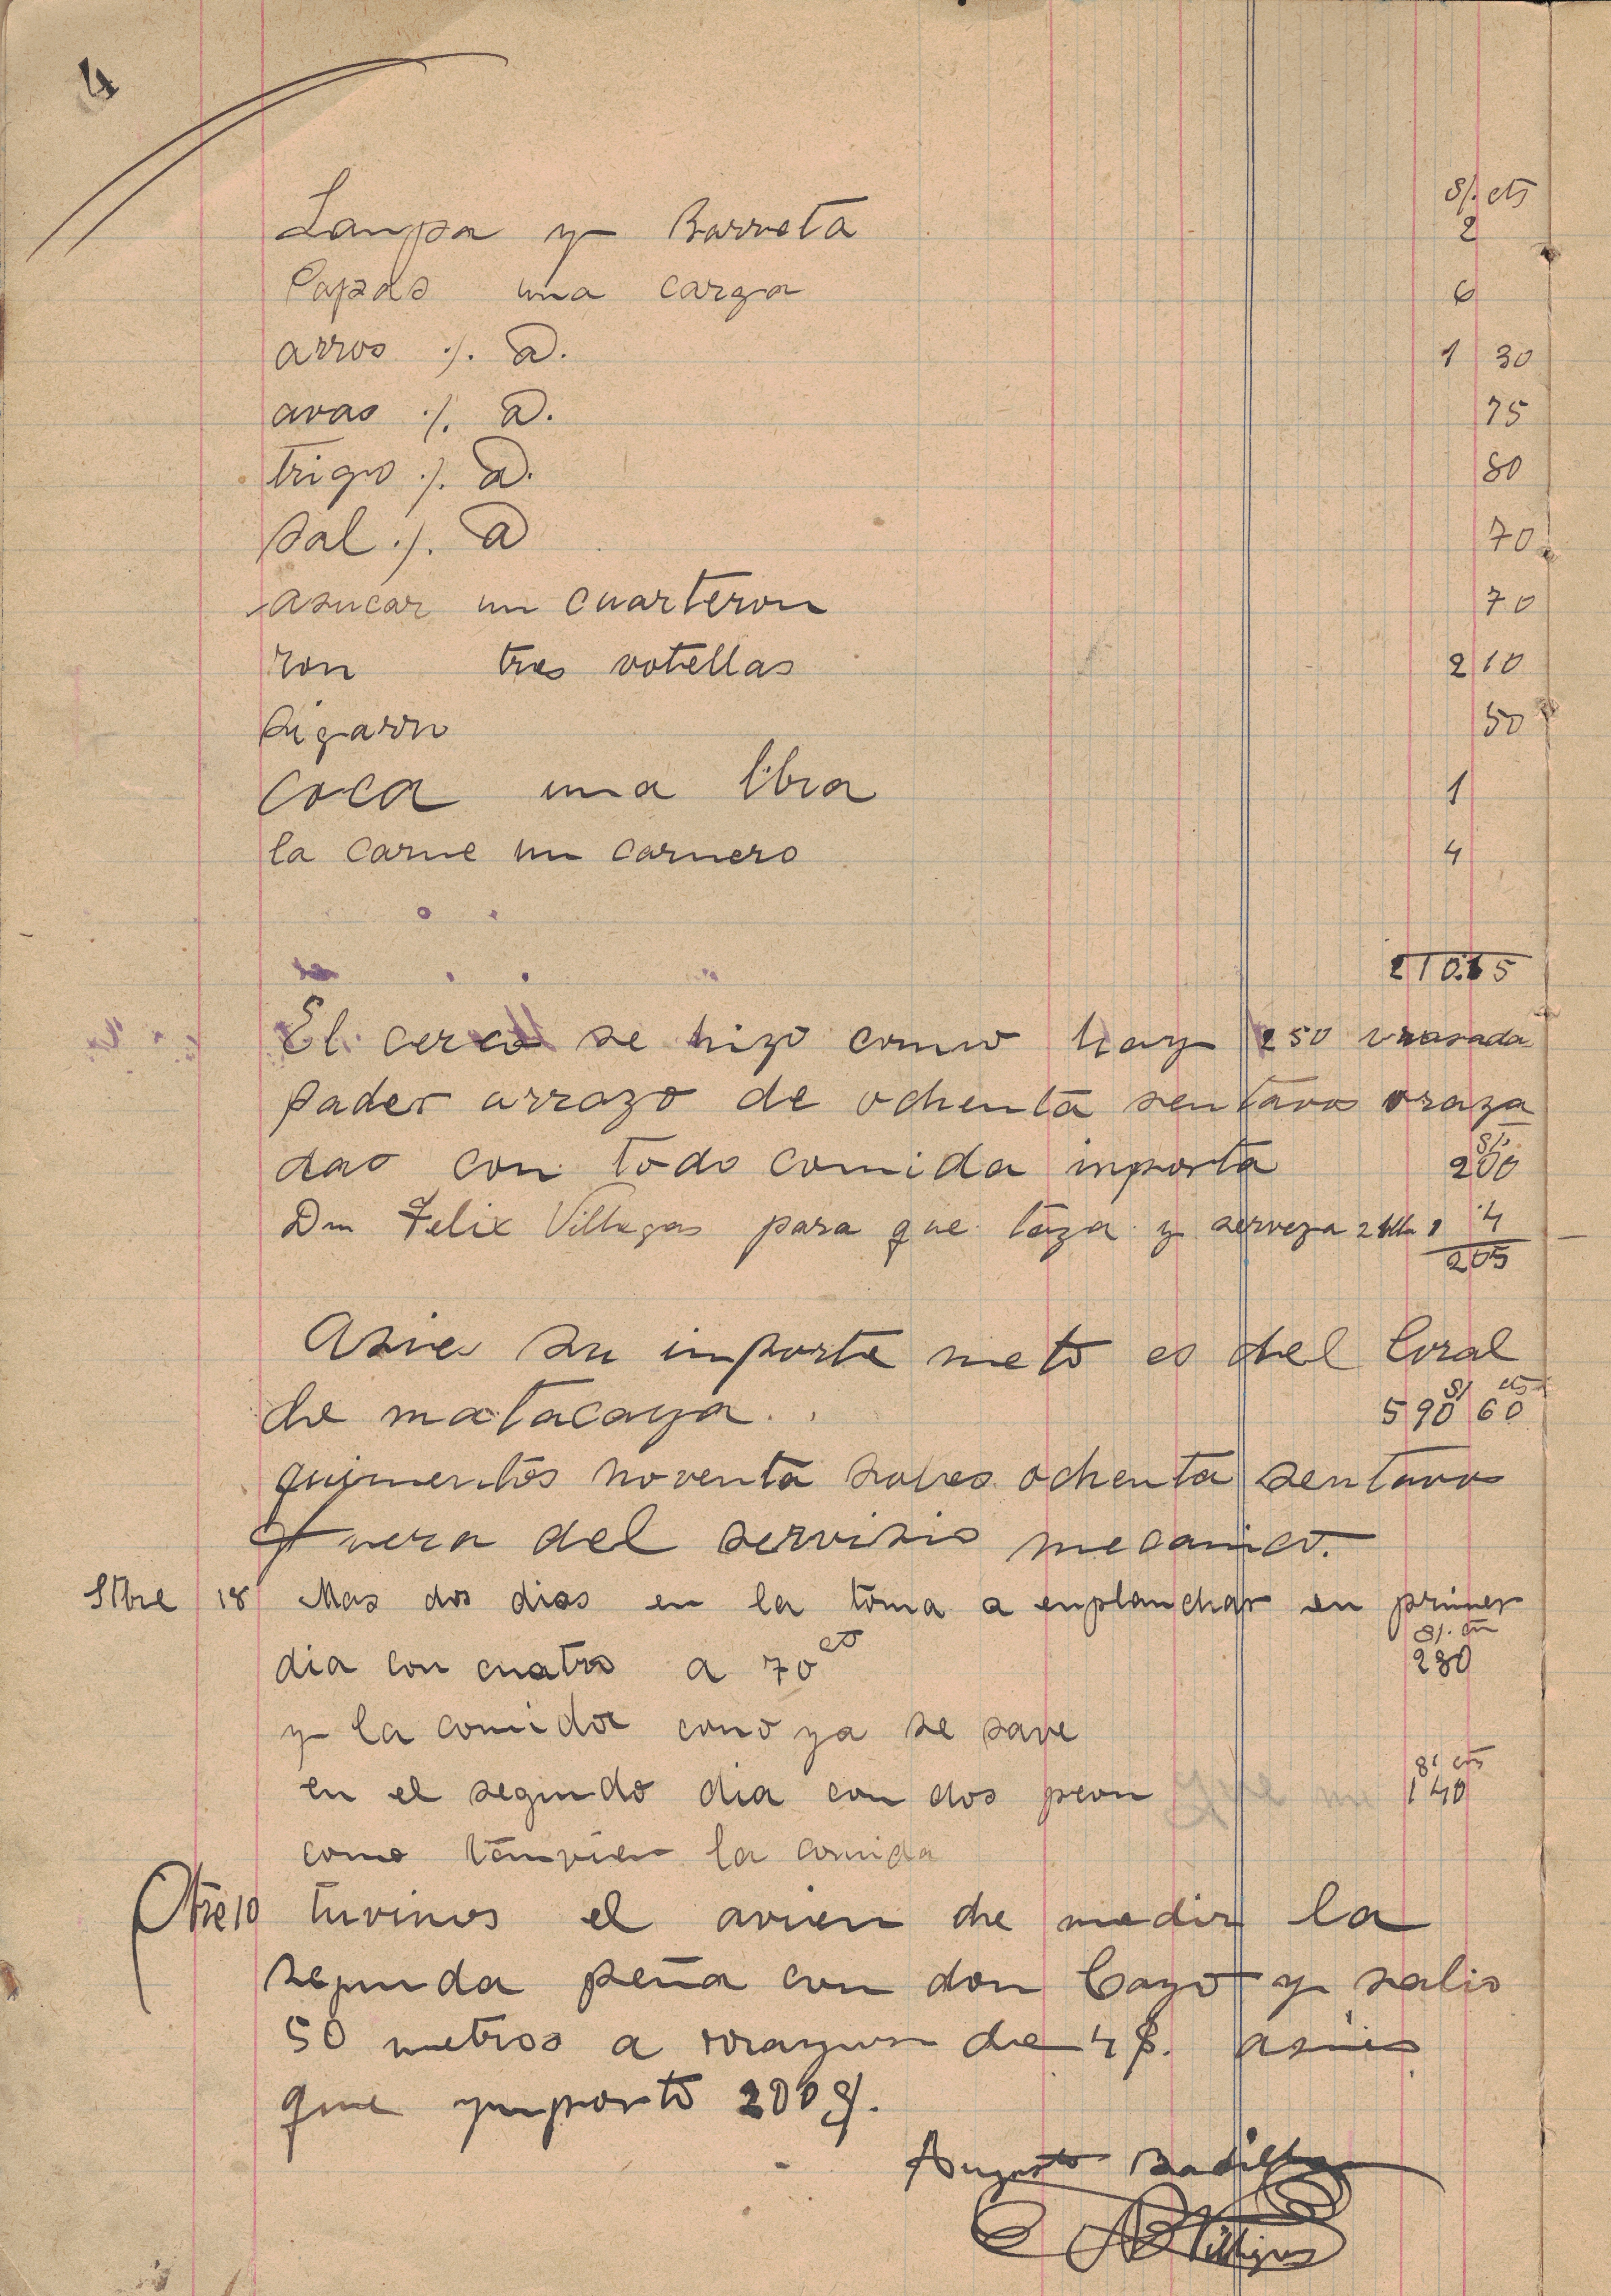 4
S/. cts
Lampa y Barreta 2
Papas una carga 6
arros ./. @. 1 30
avas ./. @. 75
trigo ./. @. 80
sal ./. @ 70
asucar un cuarteron 70
ron tres votellas 2 10
sigarro 50
coca una libra 1
la carne un carnero 4
El cerco se hizo como hay 250 vrasada
pader arrazo de ochenta sentavos vraza
das con todo comida inporta S/. 200
Dn Felix Villegas para que taza y serveza 2 1 4
205
Asies su inporte neto es del Coral
de matacaya. S/ cts 590 60
quinientos noventa soles ochenta sentavos
fuera del servisio mecanico.
Stbre 18 Mas dos dias en la toma a enplanchar en primer
dia con cuatro a 70 cts S/. cts 280
y la comida como ya se save
en el segundo dia con dos peon S/ cts 140
como tanvien la comida
Otre 10 tuvimos el avien de medir la
segunda peña con don Cayo y salio
50 metros a rrazon de 4 $. asies
que ymporto 200 S/.
Augusto Badillo
Villegas